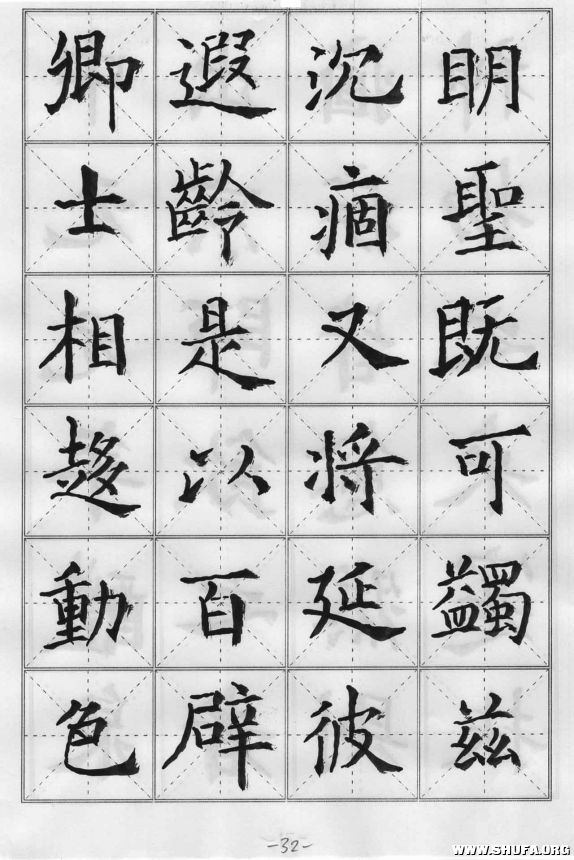 明聖既可蠲兹
沉痼又將延彼
遐齡是以百辟
卿士相趍動色
-32-
WWW.SHUFA.ORG